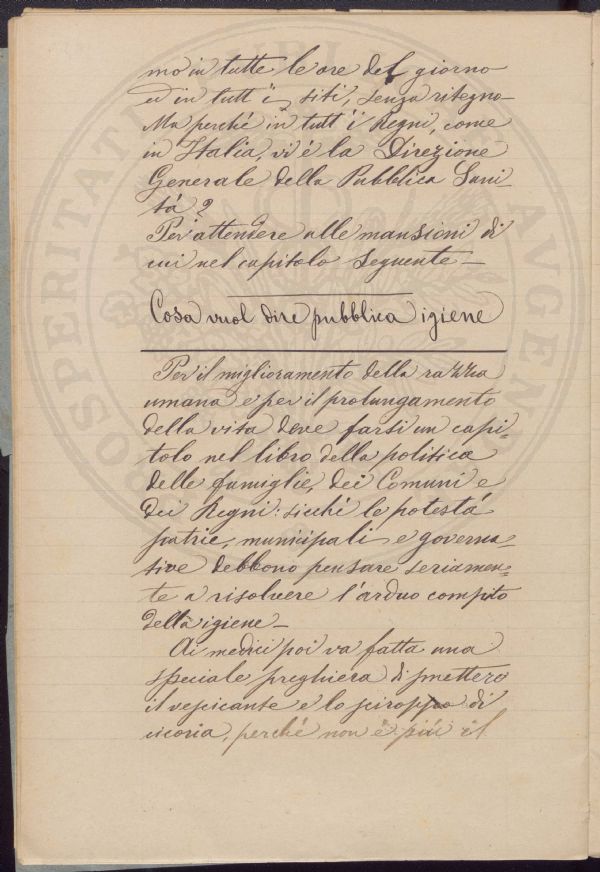 mo in tutte le ore del giorno
ed in tutt'i siti, senza ritegno
Ma perché in tutt'i Regni, come
in Italia, vi é la Direzione
Generale della Pubblica Sani
tá?
Per attendere alle mansioni di
cui nel capitolo seguente _
Cosa vuol dire pubblica igiene
Per il miglioramento della razza
umana e per il prolungamento
della vita deve farsi un capi-
tolo nel libro della politica
delle famiglie, dei Comuni e
dei Regni: sicché le potestá
patrie, municipali e governa-
tive debbono pensare seriamen-
te a risolvere l'arduo compito
della igiene _
Ai medici poi va fatta una
speciale preghiera di smettere
il vescicante e lo sciroppo di
cicoria, perché non é piú il
PROSPERITATI AVGEN